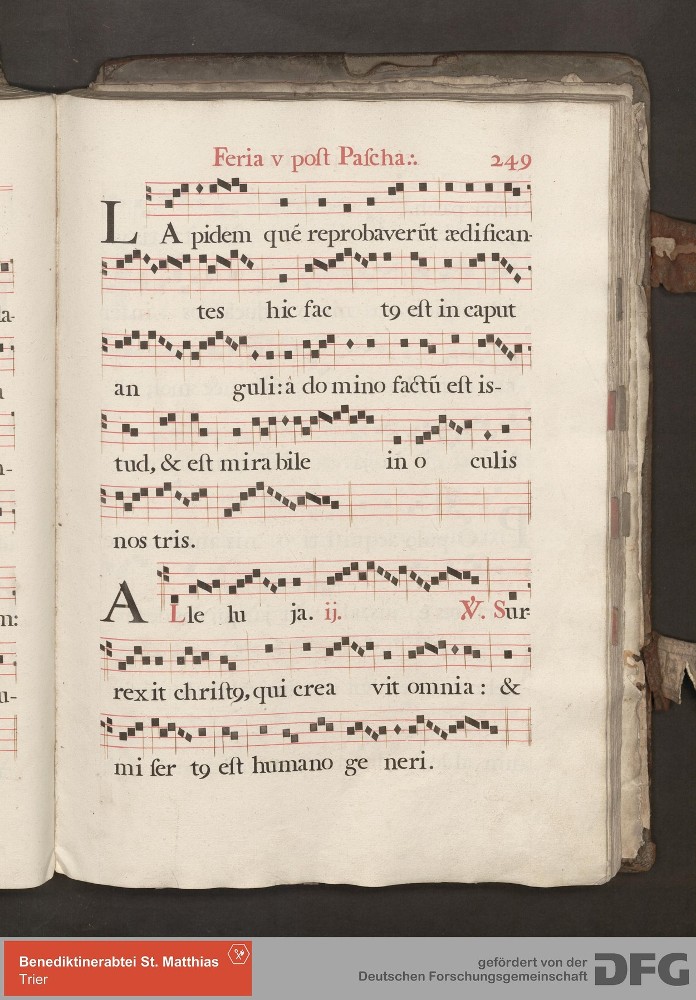 Feria v poſt Paſcha∴ 249
LA pidem qué reprobaverũt ædifican-
tes hic fac t9 eſt in caput
an guli: à do mino factũ eſt is-
tud, & eſt mira bile in o culis
nos tris.
ALle lu ja. ij. ℣. Sur-
rexit chriſt9, qui crea vit omnia: &
mi ſer t9 eſt humano ge neri.
la-
m:
u-
Benediktinerabtei St. Matthias
Trier
gefördert von der
Deutschen Forschungsgemeinschaft
DFG